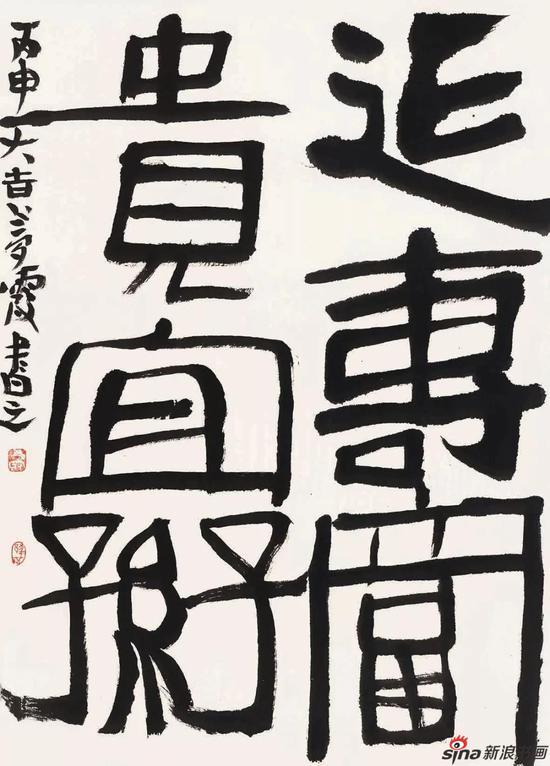 延壽富
貴宜子孫
丙申大吉夢霞書之
sina新浪书画